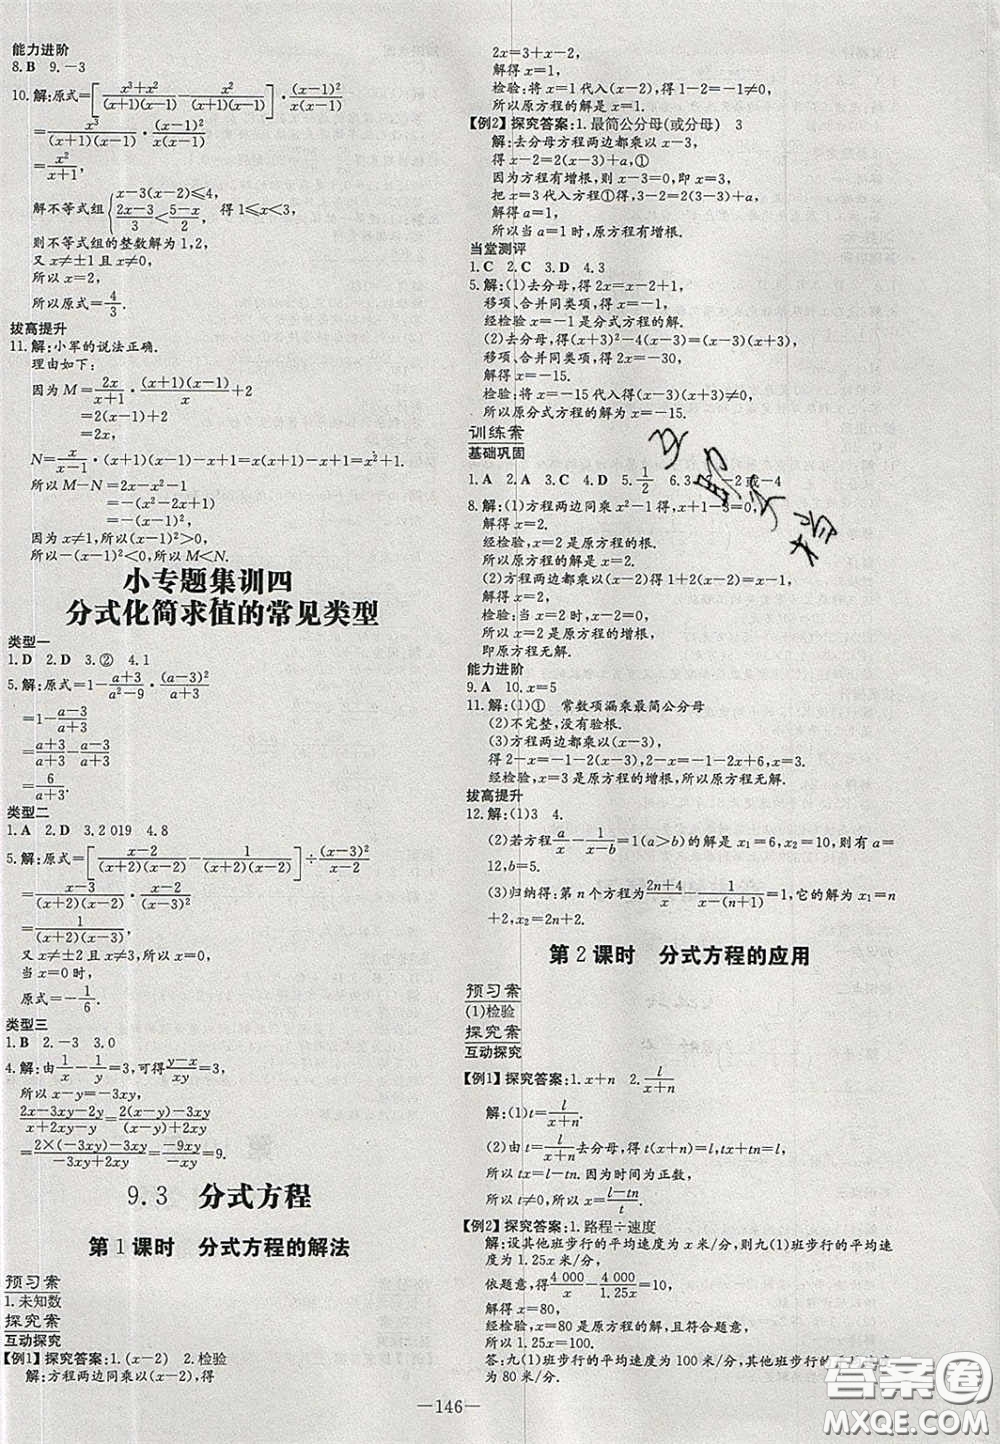 能力进阶
8.B 9.-3
10.解:原式=[x³+x²/(x+1)(x-1) - x²/(x+1)(x-1)]·(x-1)²/x(x-1)
=x³/(x+1)(x-1)·(x-1)²/x(x-1)
=x²/x+1,
解不等式组{x-3(x-2)≤4, 2x-3/3<5-x/2, 得1≤x<3,
则不等式组的整数解为1,2,
又x≠±1且x≠0,
所以x=2,
所以原式=4/3.
拔高提升
11.解:小军的说法正确.
理由如下:
因为M=2x/x+1·(x+1)(x-1)/x+2
=2(x-1)+2
=2x,
N=x/x-1·(x+1)(x-1)-(x-1)=x(x+1)-x+1=x²+1.
所以M-N=2x-(x²+1)
=-(x-1)²
因为x≠1,所以(x-1)²>0,
所以-(x-1)²<0,所以M<N.
小专题集训四
分式化简求值的常见类型
类型一
1.D 2.D 3.② 4.1
5.解:原式=1-a-3/a²-9·(a-3)²/a-3
=1-a-3/a+3
=a+3/a+3-a-3/a+3
=6/a+3.
类型二
1.A 2.D 3.2 019 4.8
5.解:原式=[x-2/(x+2)(x-2) - 1/(x+2)(x-2)]÷(x-3)²/x-2
=x-3/(x+2)(x-2)·x-2/(x-3)²
=1/(x+2)(x-3),
又x≠±2且x≠3,所以x=0,
原式=-1/6.
类型三
1.B 2.-3 3.0
4.解:由1/x-1/y=3,可得y-x/xy=3,
所以x-y=-3xy,
2x-3xy-2y/x-2xy-y=2(x-y)-3xy/(x-y)-2xy
=2×(-3xy)-3xy/-3xy+2xy=-9xy/-xy=9.
9.3 分式方程
第1课时 分式方程的解法
预习案
1.未知数
探究案
互动探究
【例1】探究答案:1.(x-2) 2.检验
解:方程两边同乘以(x-2),得
2x=3+x-2,
解得x=1,
检验:将x=1代入(x-2),得1-2=-1≠0,
所以原方程的解是x=1.
【例2】探究答案:1.最简公分母(或分母) 3
解:去分母方程两边都乘以x-3,
得x=2(x-3)+a,①
因为方程有增根,则x-3=0,即x=3,
把x=3代入方程①得,3=2(3-3)+a,
解得a=3,
所以当a=3时,原方程有增根.
当堂测评
1.C 2.C 3.D 4.3
5.解:(1)去分母,得2x=x-2+1,
移项、合并同类项,得x=-1,
经检验x=-1是分式方程的解.
(2)去分母,得(x+3)²-4(x-3)=(x-3)(x+3),
移项、合并同类项,得2x=-30,
解得x=-15.
检验:将x=-15代入得(x-3)(x+3)≠0,
所以原分式方程的解为x=-15.
训练案
基础巩固
1.A 2.A 3.C 4.D 5.1/2 6.3 -2或-4
8.解:(1)方程两边同乘x²-1得,x+1-3=0,
解得x=2.
经检验,x=2是原方程的根,
所以原方程的根是x=2.
(2)方程两边都乘以(x-2)得,
解得x=2,
经检验:当x=2时,x-2=0,
所以x=2是原方程的增根,
即原方程无解.
能力进阶
9.A 10.x=5
11.解:(1)① 常数项漏乘最简公分母
(2)不完整,没有验根.
(3)方程两边都乘以(x-3),
得2-x=-1-2(x-3),2-x=-1-2x+6,x=3,
经检验,x=3是原方程的增根,所以原方程无解.
拔高提升
12.解:(1)3 4.
(2)若方程a/x-1/x-b=1(a>b)的解是x₁=6,x₂=10,则有a=
12,b=5.
(3)归纳得:第n个方程为2n+4/x-1/x-(n+1)=1,它的解为x₁=n
+2,x₂=2n+2.
第2课时 分式方程的应用
预习案
(1)检验
探究案
互动探究
【例1】探究答案:1.x+n 2.l/x+n
解:(1)t=l/x+n.
(2)由t=l/x+n去分母,得t(x+n)=l,tx+tn=l,
所以tx=l-tn.因为时间为正数,
所以t≠0,所以x=l-tn/t.
【例2】探究答案:1.路程÷速度
解:设其他班步行的平均速度为x米/分,则九(1)班步行的平均速度
为1.25x米/分,
依题意,得4 000/x-4 000/1.25x=10,
解得x=80,
经检验,x=80是原方程的解,且符合题意,
所以1.25x=100.
答:九(1)班步行的平均速度为100米/分,其他班步行的平均速度
为80米/分.
—146—
互助文档
答案圈
MXQE.COM